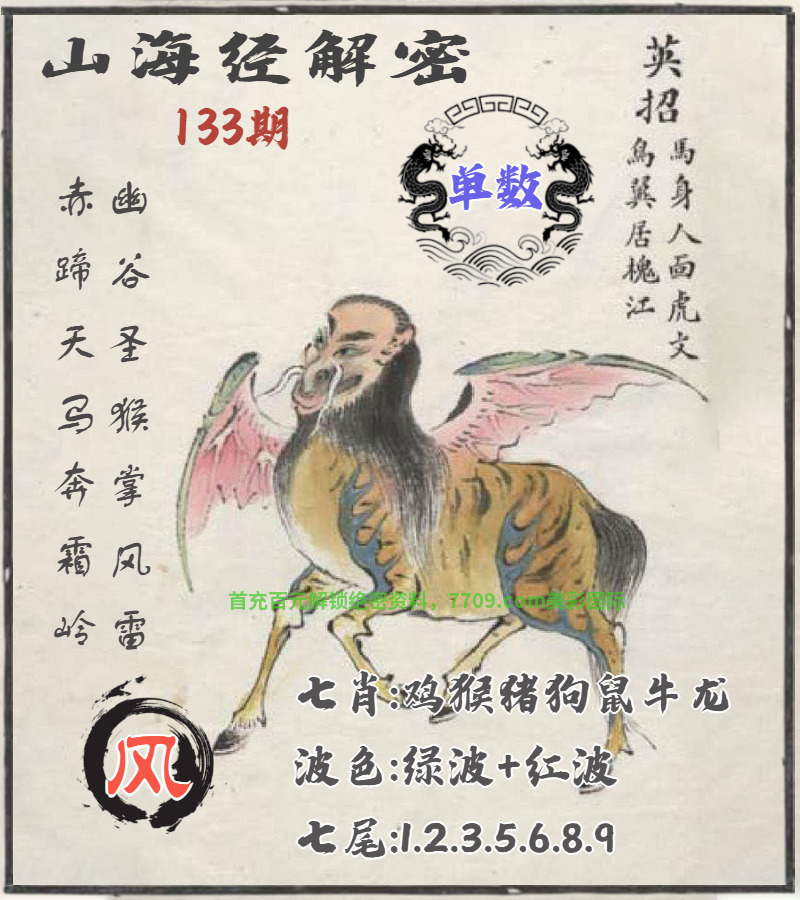 山海经解密
133期
单数
英招
馬身人面虎文
鳥翼居槐江
幽谷圣猴掌风雷
赤蹄天马奔霜岭
首充百元解锁绝密资料，7709.com美彩国际
七肖:鸡猴猪狗鼠牛龙
波色:绿波+红波
七尾:1.2.3.5.6.8.9
风